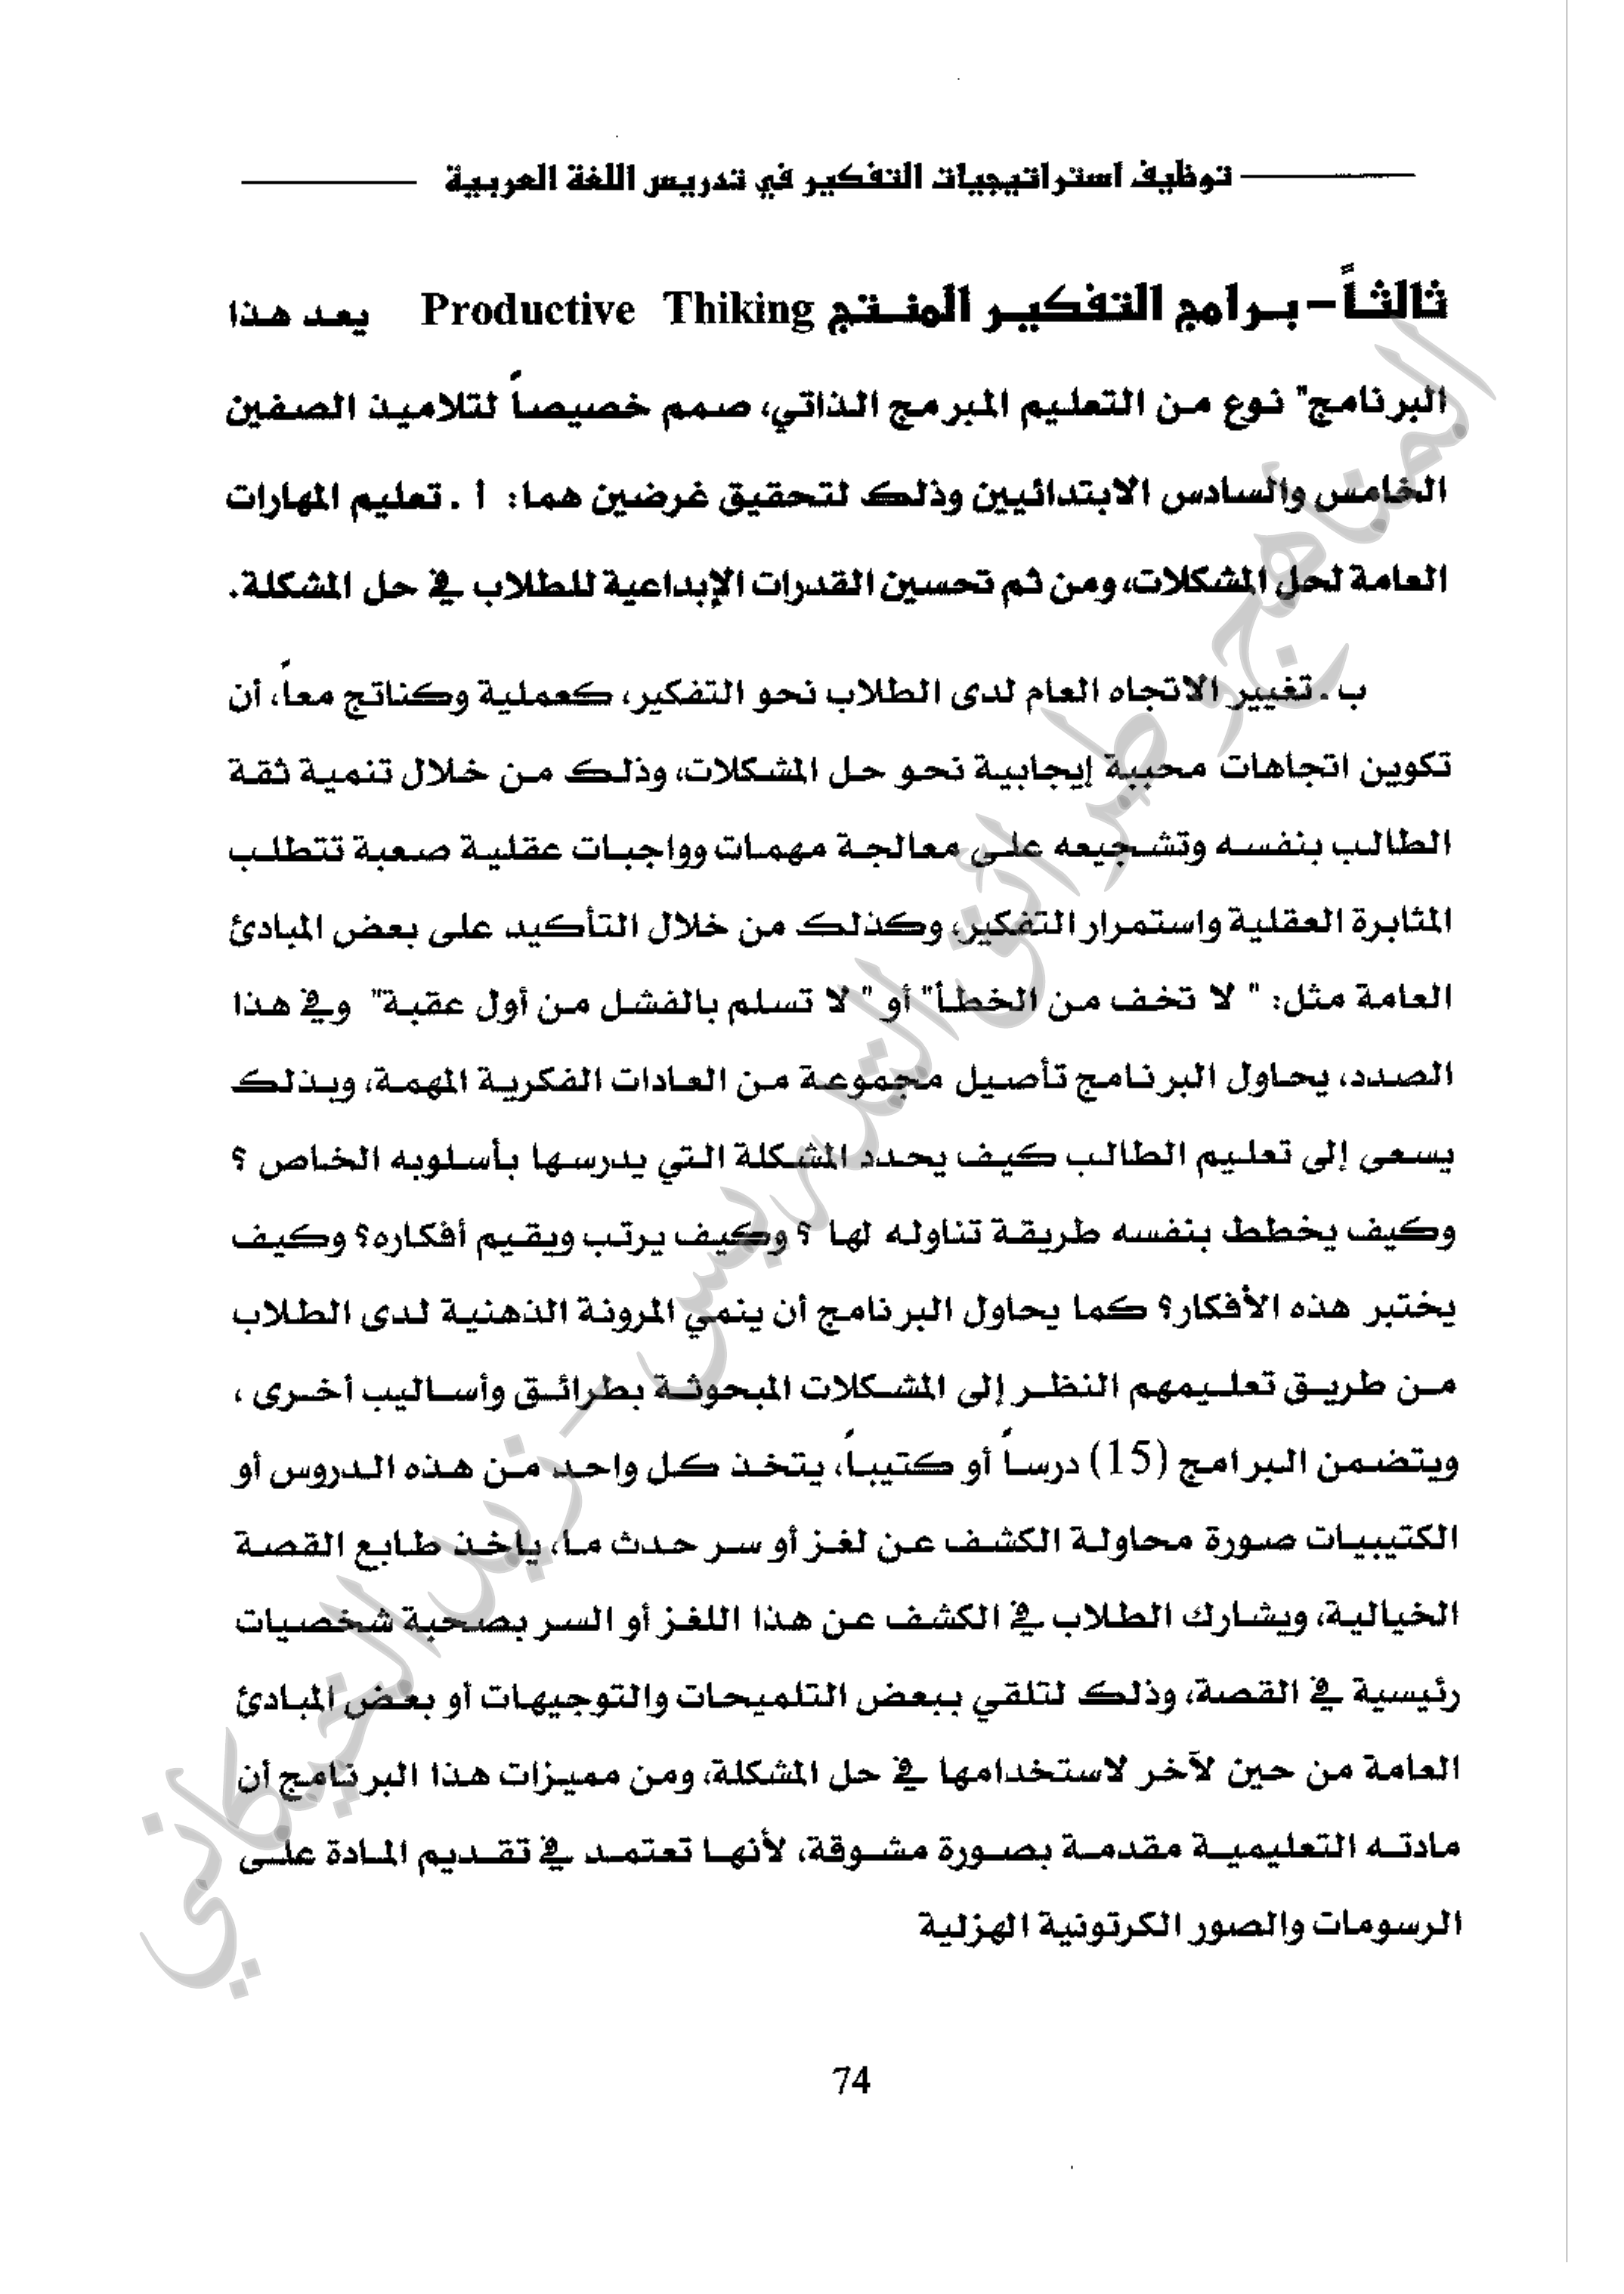 توظيف استراتيجيات التفكير في تدريس اللغة العربية
ثالثاً – برامج التفكير المنتج Productive Thiking يعد هذا
البرنامج" نوع من التعليم المبرمج الذاتي، صمم خصيصاً لتلاميذ الصفين
الخامس والسادس الابتدائيين وذلك لتحقيق غرضين هما: أ . تعليم المهارات
العامة لحل المشكلات، ومن ثم تحسين القدرات الإبداعية للطلاب في حل المشكلة.
ب . تغيير الاتجاه العام لدى الطلاب نحو التفكير، كعملية وكناتج معاً، أن
تكوين اتجاهات محببة إيجابية نحو حل المشكلات، وذلك من خلال تنمية ثقة
الطالب بنفسه وتشجيعه على معالجة مهمات وواجبات عقلية صعبة تتطلب
المثابرة العقلية واستمرار التفكير، وكذلك من خلال التأكيد على بعض المبادئ
العامة مثل: " لا تخف من الخطأ" أو " لا تسلم بالفشل من أول عقبة" وفي هذا
الصدد، يحاول البرنامج تأصيل مجموعة من العادات الفكرية المهمة، وبذلك
يسعى إلى تعليم الطالب كيف يحدد المشكلة التي يدرسها بأسلوبه الخاص ؟
وكيف يخطط بنفسه طريقة تناوله لها ؟ وكيف يرتب ويقيم أفكاره؟ وكيف
يختبر هذه الأفكار؟ كما يحاول البرنامج أن ينمي المرونة الذهنية لدى الطلاب
من طريق تعليمهم النظر إلى المشكلات المبحوثة بطرائق وأساليب أخرى ،
ويتضمن البرامج (15) درساً أو كتيباً، يتخذ كل واحد من هذه الدروس أو
الكتيبيات صورة محاولة الكشف عن لغز أو سر حدث ما، ياخذ طابع القصة
الخيالية، ويشارك الطلاب في الكشف عن هذا اللغز أو السر بصحبة شخصيات
رئيسية في القصة، وذلك لتلقي ببعض التلميحات والتوجيهات أو بعض المبادئ
العامة من حين لآخر لاستخدامها في حل المشكلة، ومن مميزات هذا البرنامج أن
مادته التعليمية مقدمة بصورة مشوقة، لأنها تعتمد في تقديم المادة على
الرسومات والصور الكرتونية الهزلية
74
المناهج وطرائق التدريس - زيد الخيكاني